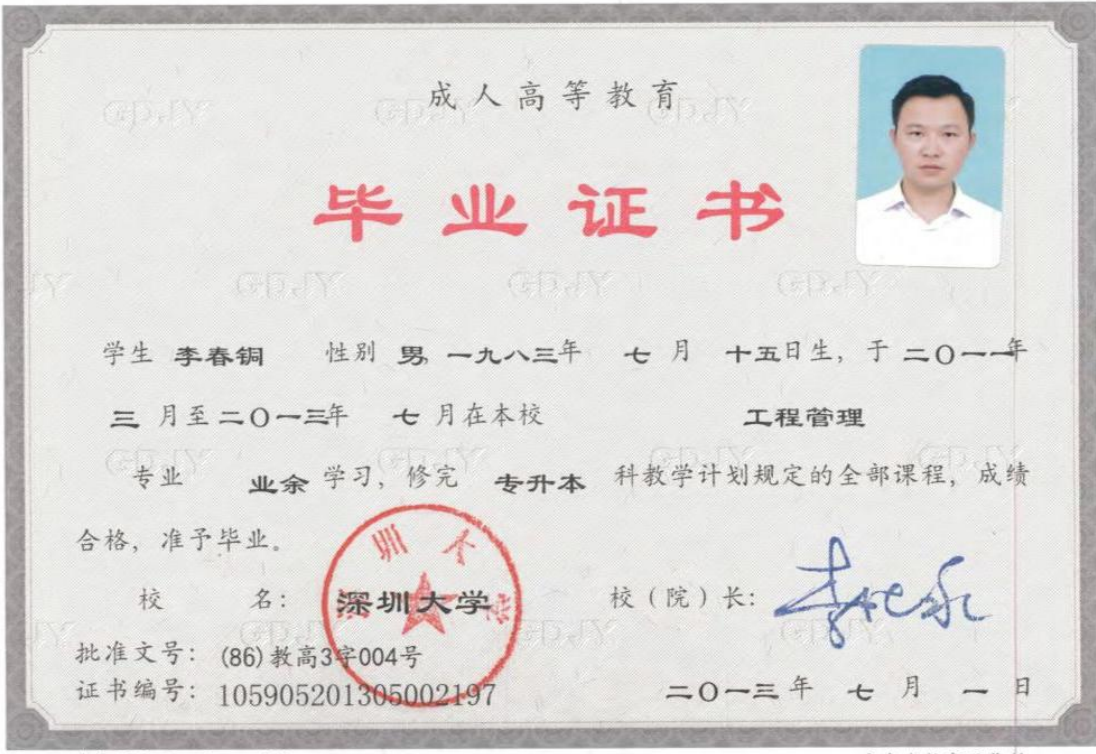 成人高等教育
毕业证书
学生 李春铜 性别 男, 一九八三年 七 月 十五日生, 于 二〇一一年
三 月至 二〇一三年 七 月在本校 工程管理
专业 业余 学习, 修完 专升本 科教学计划规定的全部课程, 成绩
合格, 准予毕业。
校 名: 深圳大学 校(院)长:
批准文号: (86)教高3字004号
证书编号: 105905201305002197 二〇一三 年 七 月 一 日